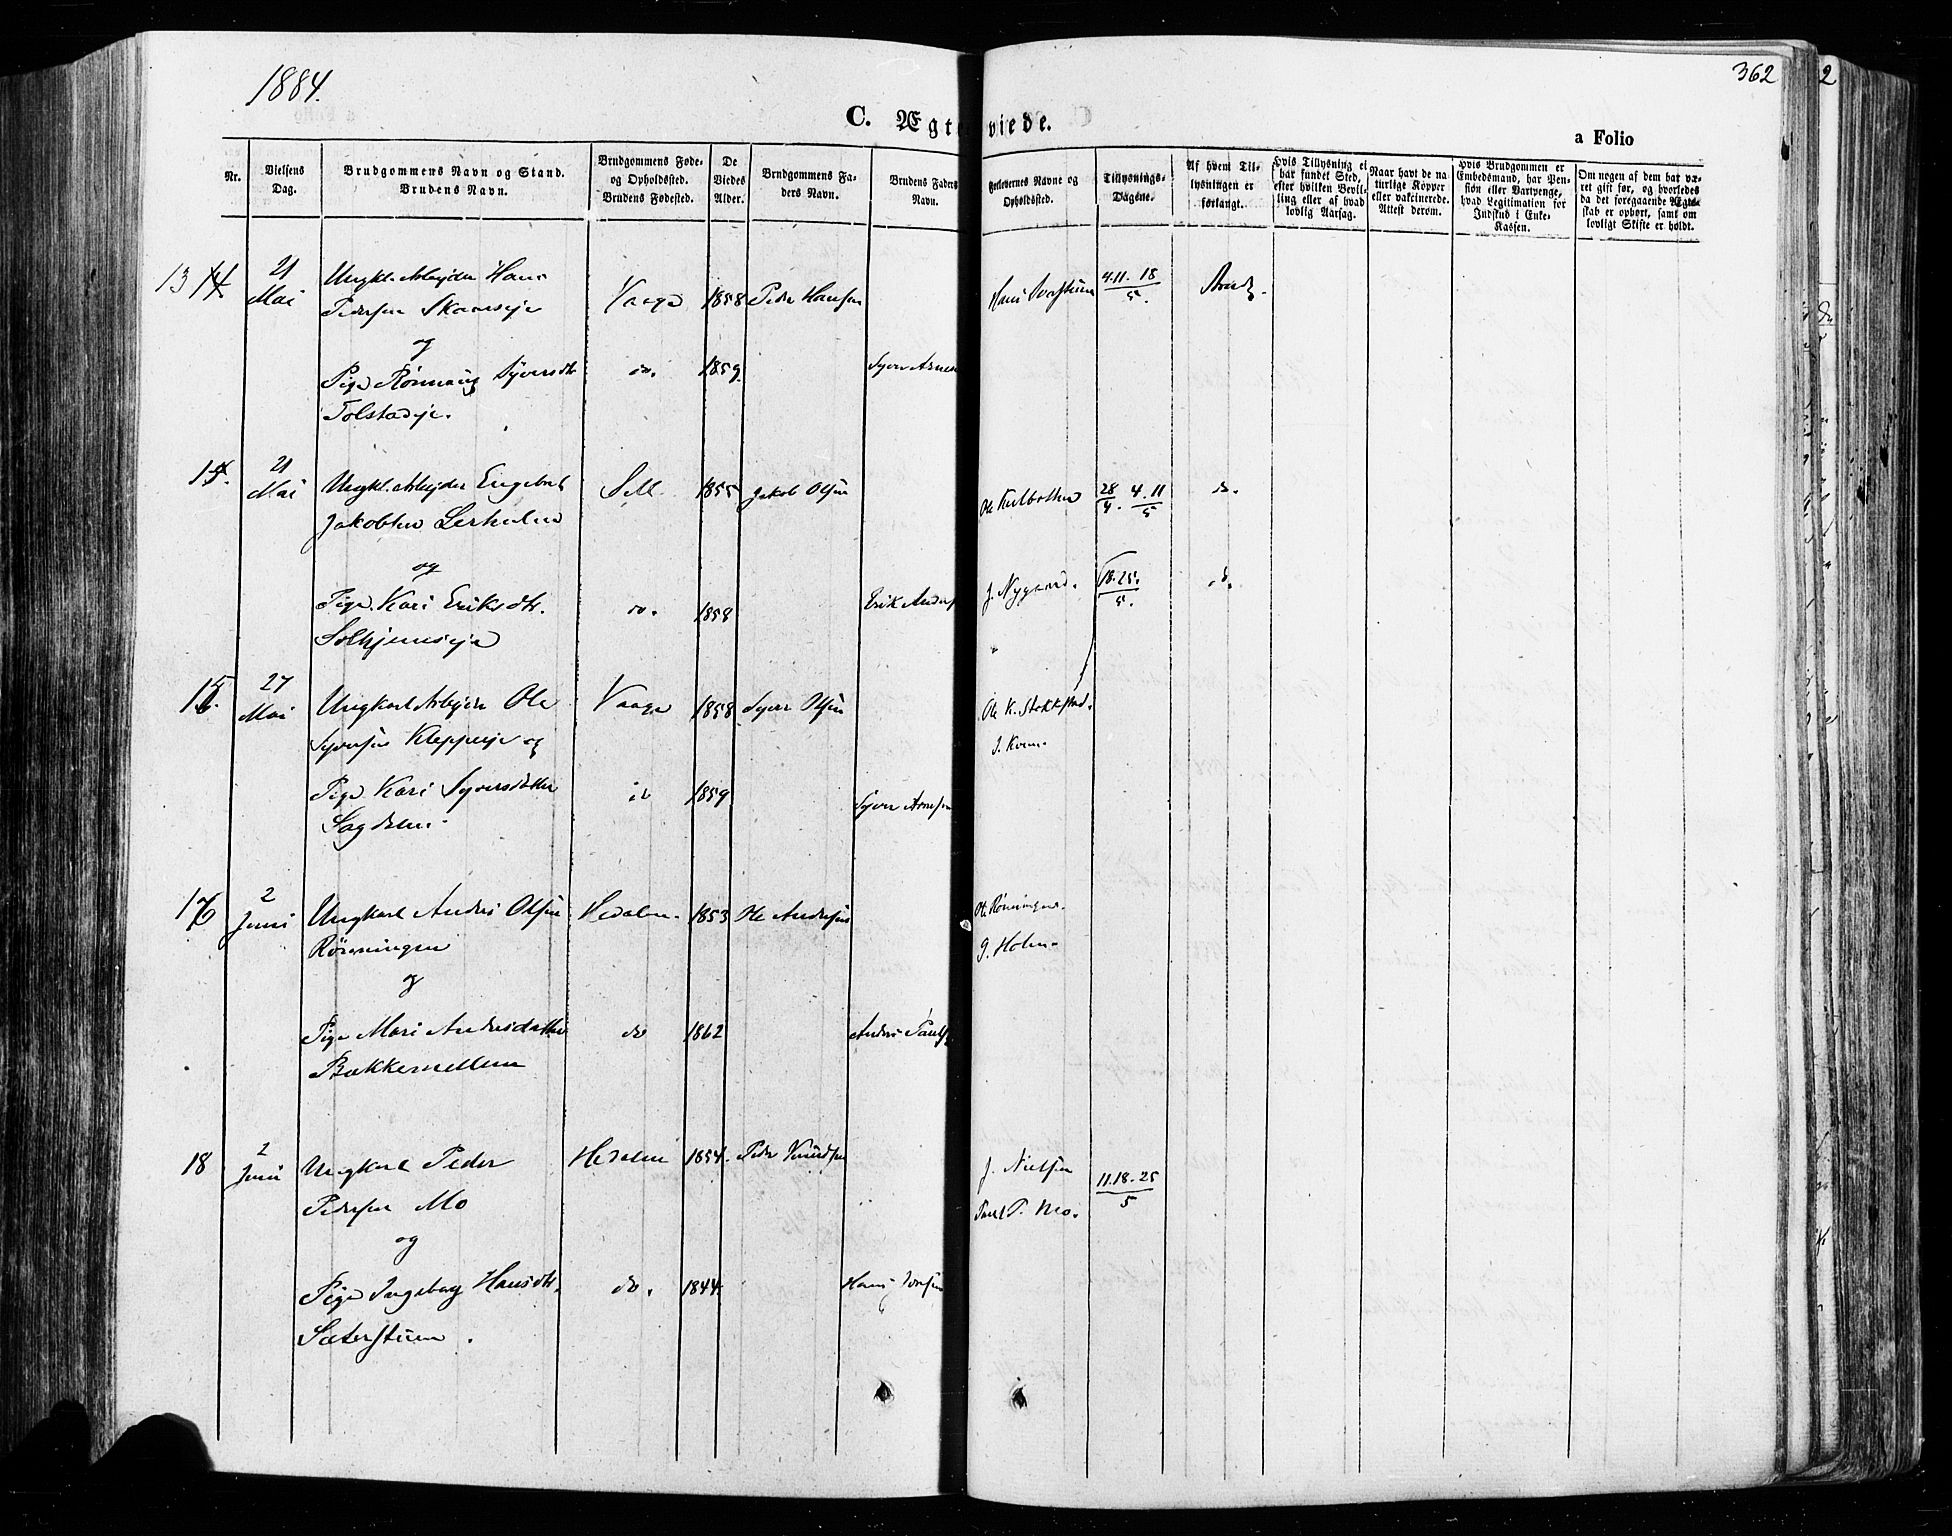 1884.
362
2
C. Ægteviede.
a Folio
Nr.
Vielsens Dag.
Brudgommens Navn og Stand. Brudens Navn.
Brudgommens Føde- og Opholdssted. Brudens Fødested.
De Viedes Alder.
Brudgommens Faders Navn.
Brudens Faders Navn.
Forlovernes Navne og Opholdssted.
Tillysnings-Dagene.
Af hvem Tillysningen er forlangt.
Hvis Tillysning ei har fundet Sted, efter hvilken Bevilling eller af hvad lovlig Aarsag.
Naar havt de naturlige Kopper eller vakcinerede. Attest derom.
Hvis Brudgommen er Embedsmand, har Pension eller Vartpenge, hvad Legitimation for Indskud i Enke-Kassen.
Om nogen af dem har været gift før, og hvorledes da det foregaaende Ægteskab er ophørt, samt om lovligt Skifte er holdt.
13 14 21 Mai Ungkl. Arbejder Hans Vaage 1858 Peder Hansen Hans 4.11.18/5.
Pedersen
og
Pige Rønnaug Syversdtr do. 1859. Syver Arnes
Tolstadeje.
14. 21 Mai Ungkl. Arbejder Engebret Sell 1855 Jakob Olsen Ole 28/4. 4.11/5 do.
Jakobsen
og
Pige Kari Eriksdtr. do. 1858 Erik Anders J. Nygaard. 18.25./5. do.
Solhjemseje
15. 27 Mai Ungkarl Arbejder Ole Vaage 1858 Syver Olsen Ole K. Stokkstad.
Syversen Kleppeje og J. Kvem
Pige Kari Syversdatter do 1859 Syver Arnesen
Sagdalen
16 2 Juni Ungkarl Anders Olsen Hedalen. 1853 Ole Andersen Ole Rønningen.
Rønningen J. Holen
og
Pige Mari Andersdatter do 1862 Anders Pauls
Bakkemellem
18 2 Juni Ungkarl Peder Hedalen 1854. Peder Knudsen J. Nielsen 11.18.25/5
Pedersen Mo Paul P. Mo.
og
Pige Ingeborg Hansdtr. do. 1844. Hans Iversen
Sæterstuen.